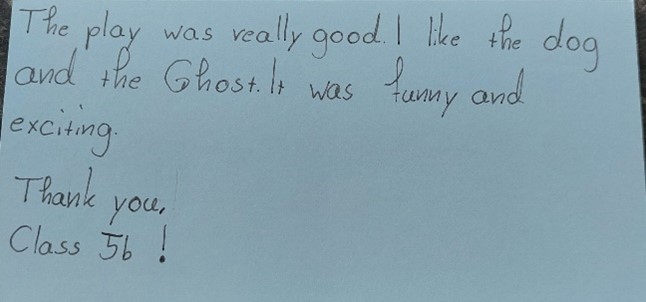 The play was really good. I like the dog
and the Ghost. It was funny and
exciting.
Thank you,
Class 5b !